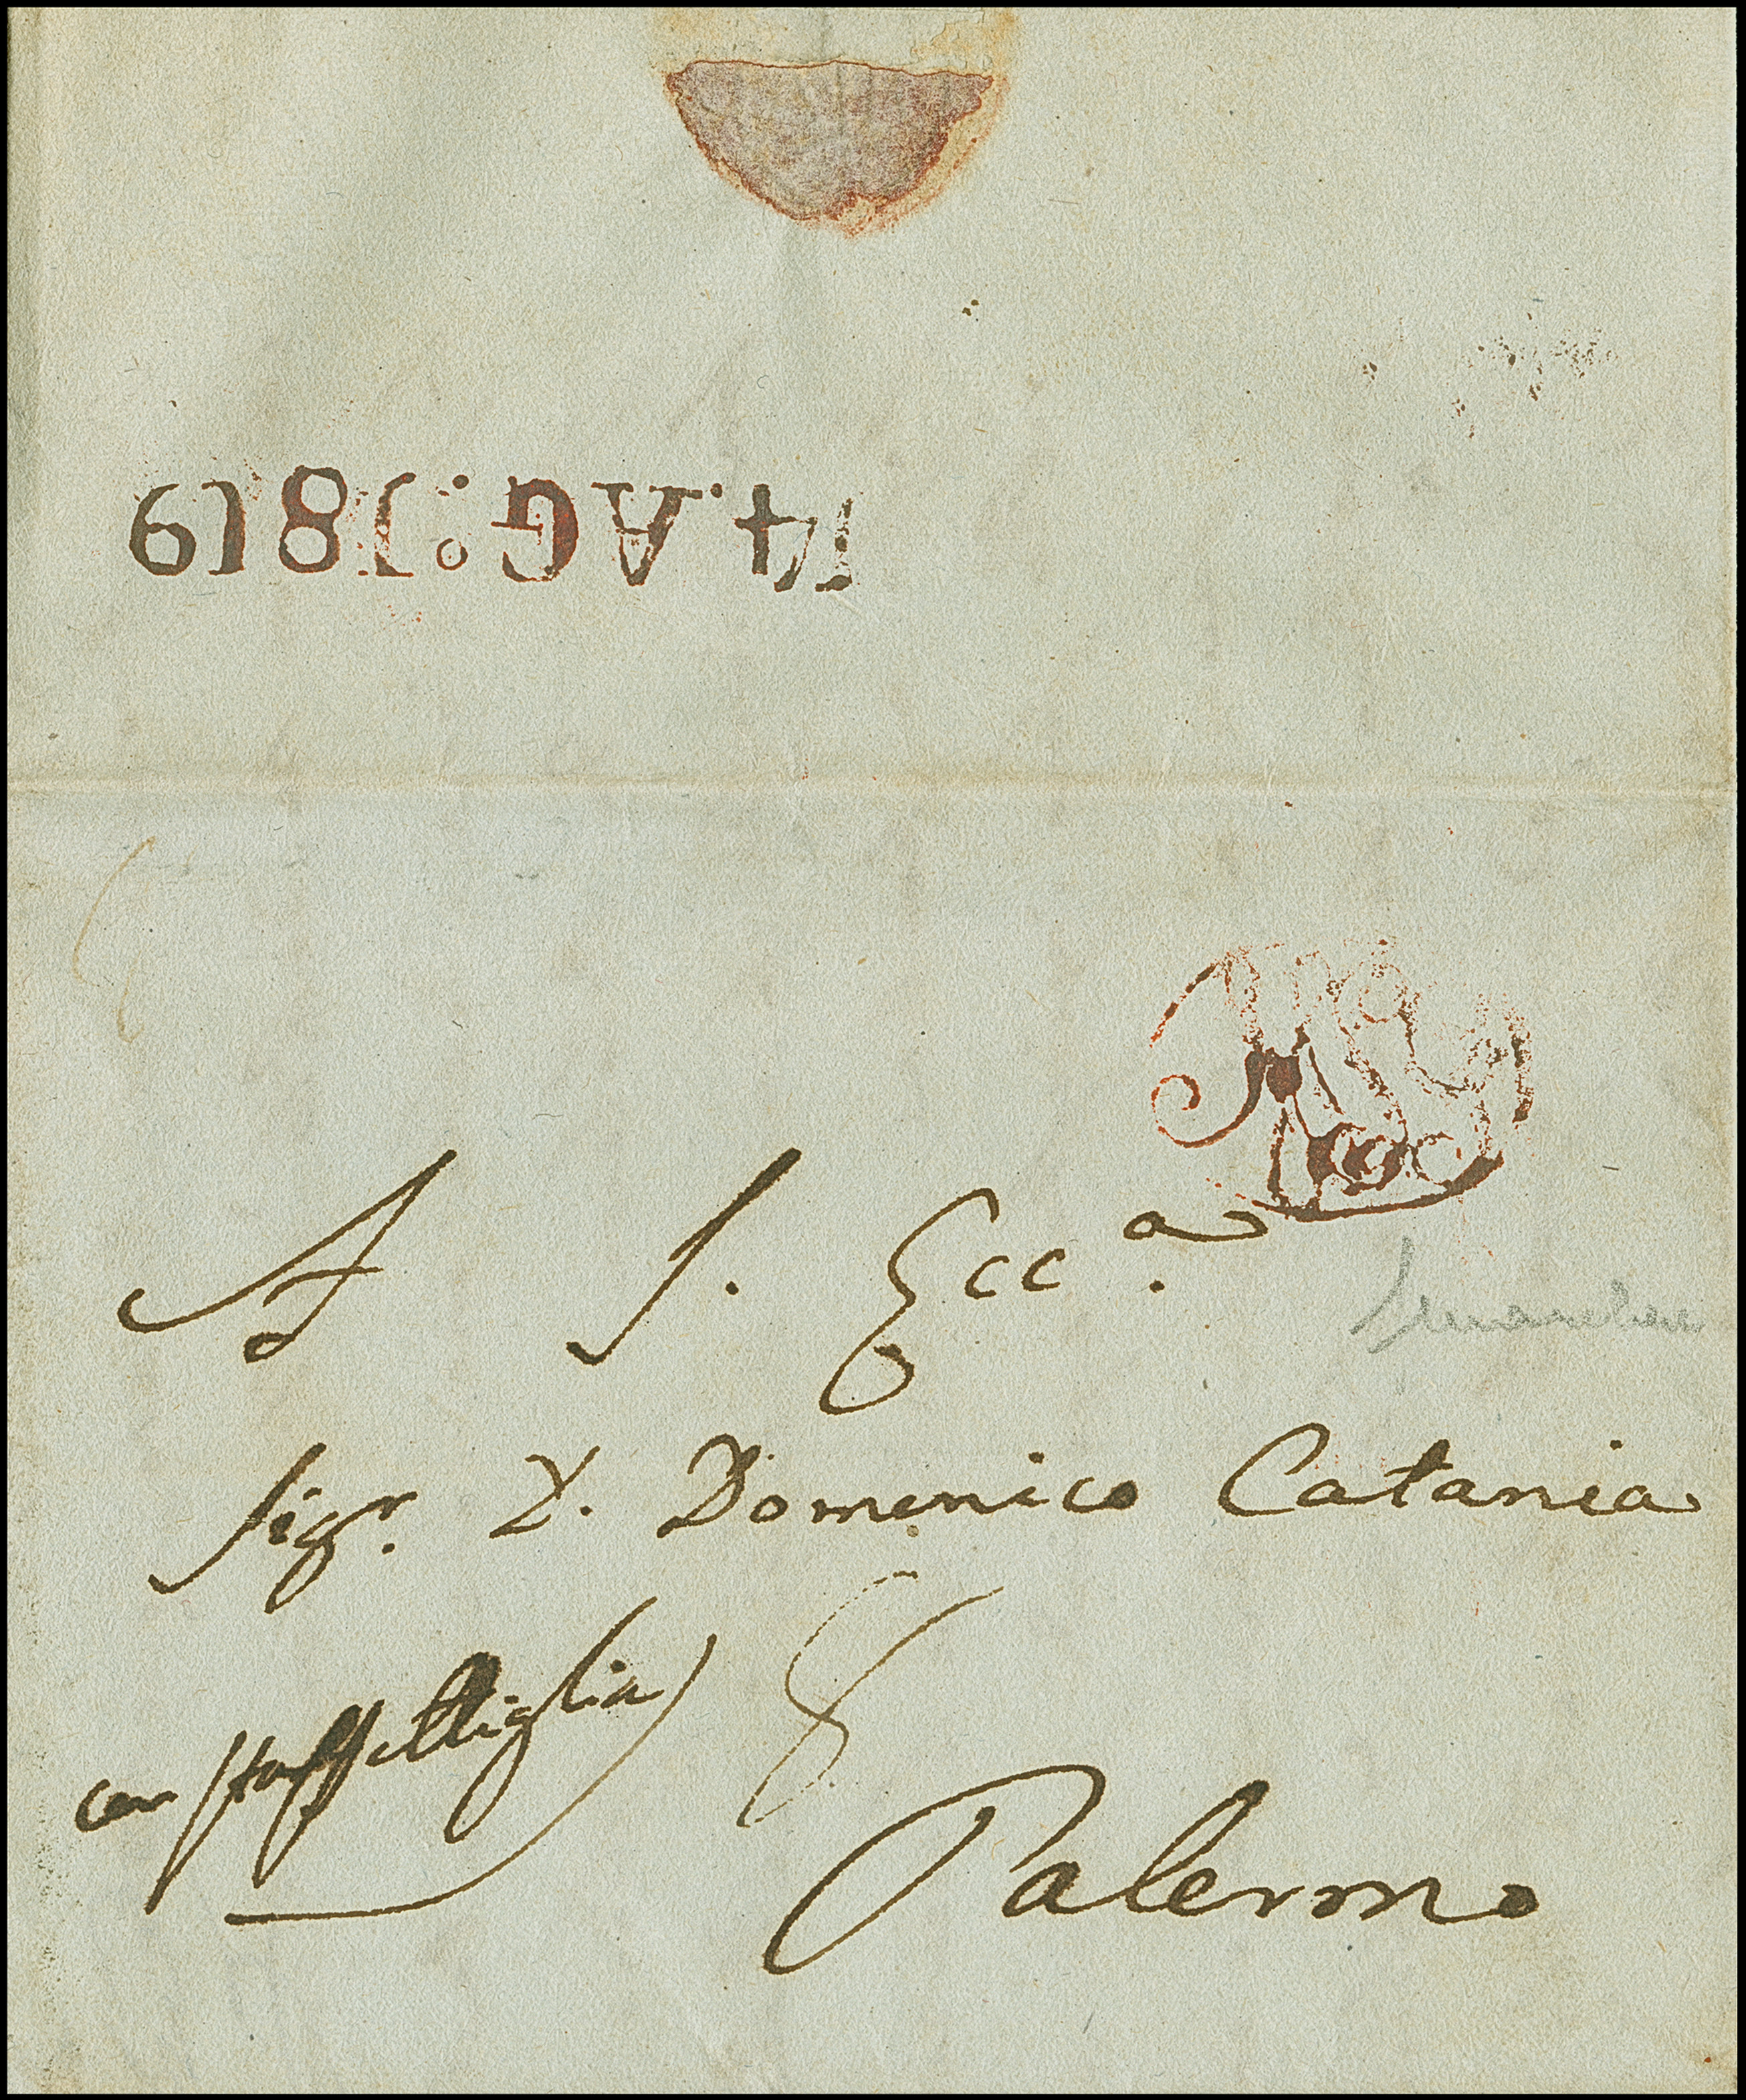 14.AG:1819
A S. Ecc.a
Sigr. D. Domenico Catania
con staffettiglia
Palermo